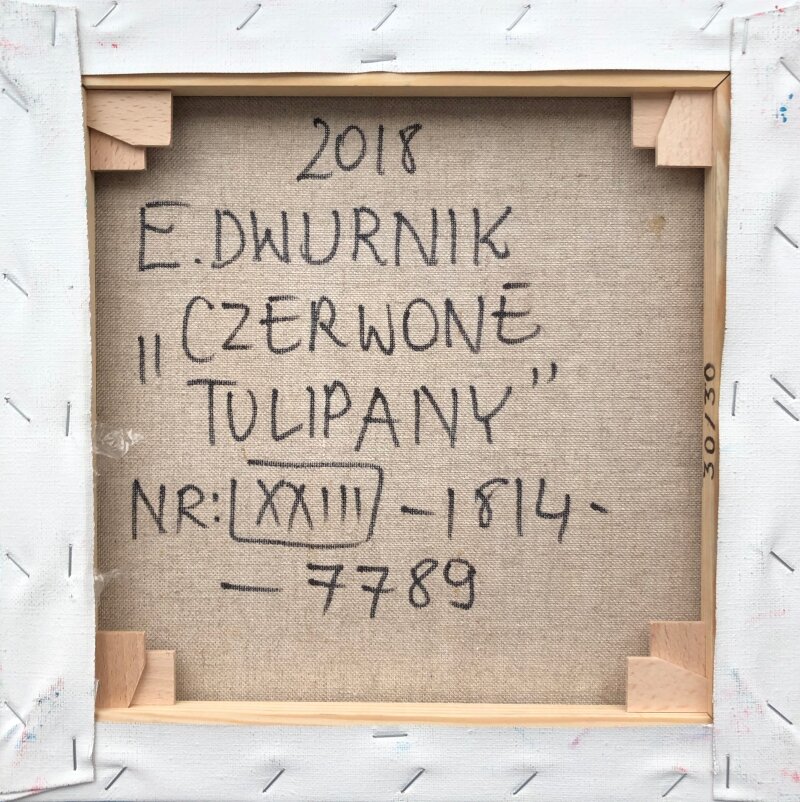 2018
E. DWURNIK
„CZERWONE
TULIPANY”
NR: XXIII - 1814 -
- 7789
30/30